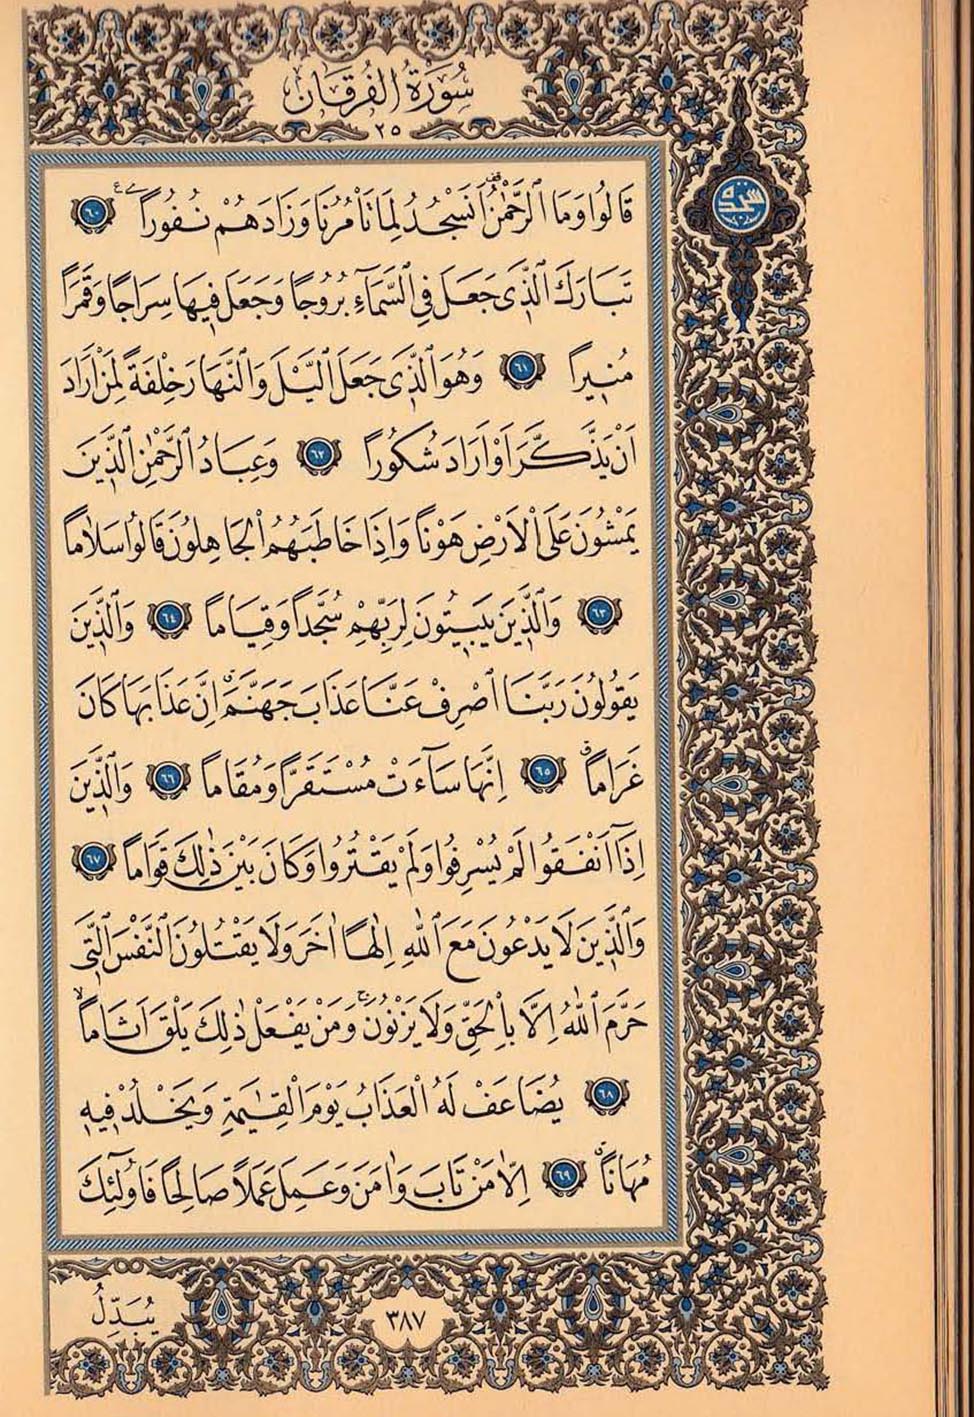 سُورَةُ الفُرْقَانِ
٢٥
سجده
قَالُوا وَمَا ٱلرَّحْمٰنُ اَنَسْجُدُ لِمَا تَأْمُرُنَا وَزَادَهُمْ نُفُورًا ٦٠
تَبَارَكَ ٱلَّذٖى جَعَلَ فِى ٱلسَّمَٓاءِ بُرُوجًا وَجَعَلَ فٖيهَا سِرَاجًا وَقَمَرًا
مُنٖيرًا ٦١ وَهُوَ ٱلَّذٖى جَعَلَ ٱلَّيْلَ وَٱلنَّهَارَ خِلْفَةً لِمَنْ اَرَادَ
اَنْ يَذَّكَّرَ اَوْ اَرَادَ شُكُورًا ٦٢ وَعِبَادُ ٱلرَّحْمٰنِ ٱلَّذٖينَ
يَمْشُونَ عَلَى ٱلْاَرْضِ هَوْنًا وَاِذَا خَاطَبَهُمُ ٱلْجَاهِلُونَ قَالُوا سَلَامًا
٦٣ وَٱلَّذٖينَ يَبٖيتُونَ لِرَبِّهِمْ سُجَّدًا وَقِيَامًا ٦٤ وَٱلَّذٖينَ
يَقُولُونَ رَبَّنَا ٱصْرِفْ عَنَّا عَذَابَ جَهَنَّمَ اِنَّ عَذَابَهَا كَانَ
غَرَامًا ٦٥ اِنَّهَا سَٓاءَتْ مُسْتَقَرًّا وَمُقَامًا ٦٦ وَٱلَّذٖينَ
اِذَٓا اَنْفَقُوا لَمْ يُسْرِفُوا وَلَمْ يَقْتُرُوا وَكَانَ بَيْنَ ذٰلِكَ قَوَامًا ٦٧
وَٱلَّذٖينَ لَا يَدْعُونَ مَعَ ٱللّٰهِ اِلٰهًا اٰخَرَ وَلَا يَقْتُلُونَ ٱلنَّفْسَ ٱلَّتٖى
حَرَّمَ ٱللّٰهُ اِلَّا بِالْحَقِّ وَلَا يَزْنُونَ وَمَنْ يَفْعَلْ ذٰلِكَ يَلْقَ اَثَامًا
٦٨ يُضَاعَفْ لَهُ ٱلْعَذَابُ يَوْمَ ٱلْقِيٰمَةِ وَيَخْلُدْ فٖيهٖ
مُهَانًا ٦٩ اِلَّا مَنْ تَابَ وَاٰمَنَ وَعَمِلَ عَمَلًا صَالِحًا فَاُولٰٓئِكَ
٣٨٧
يُبَدِّلُ